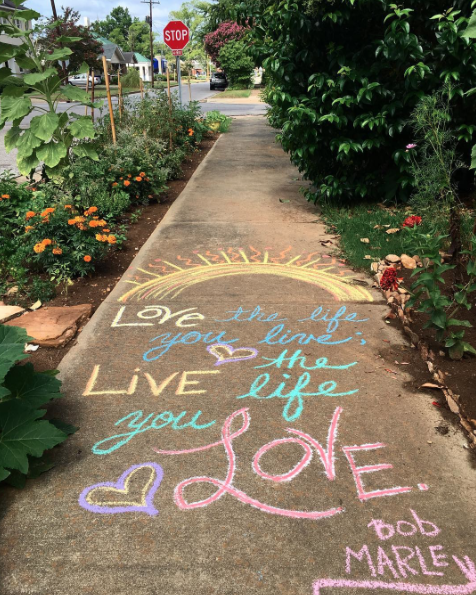 STOP
LOVE the life
you live;
LIVE the life
you
LOVE.
BOB
MARLEY